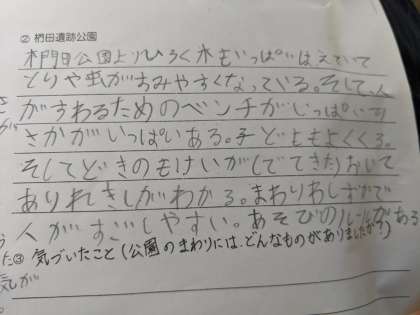 ② 椚田遺跡公園
木門日公園よりひろく木もいっぱいはえていて
とりや虫がすみやすくなっている。そして、人
がすわるためのベンチがいっぱいで
さかがいっぱいある。子どももよくくる。
そしてどきのもけいが(でてきた)おいて
ありれきしがわかる。まわりわしずかで
人がすごしやすい。あそびのルールがある
た③ 気づいたこと(公園のまわりには、どんなものがありましたか?)
気が